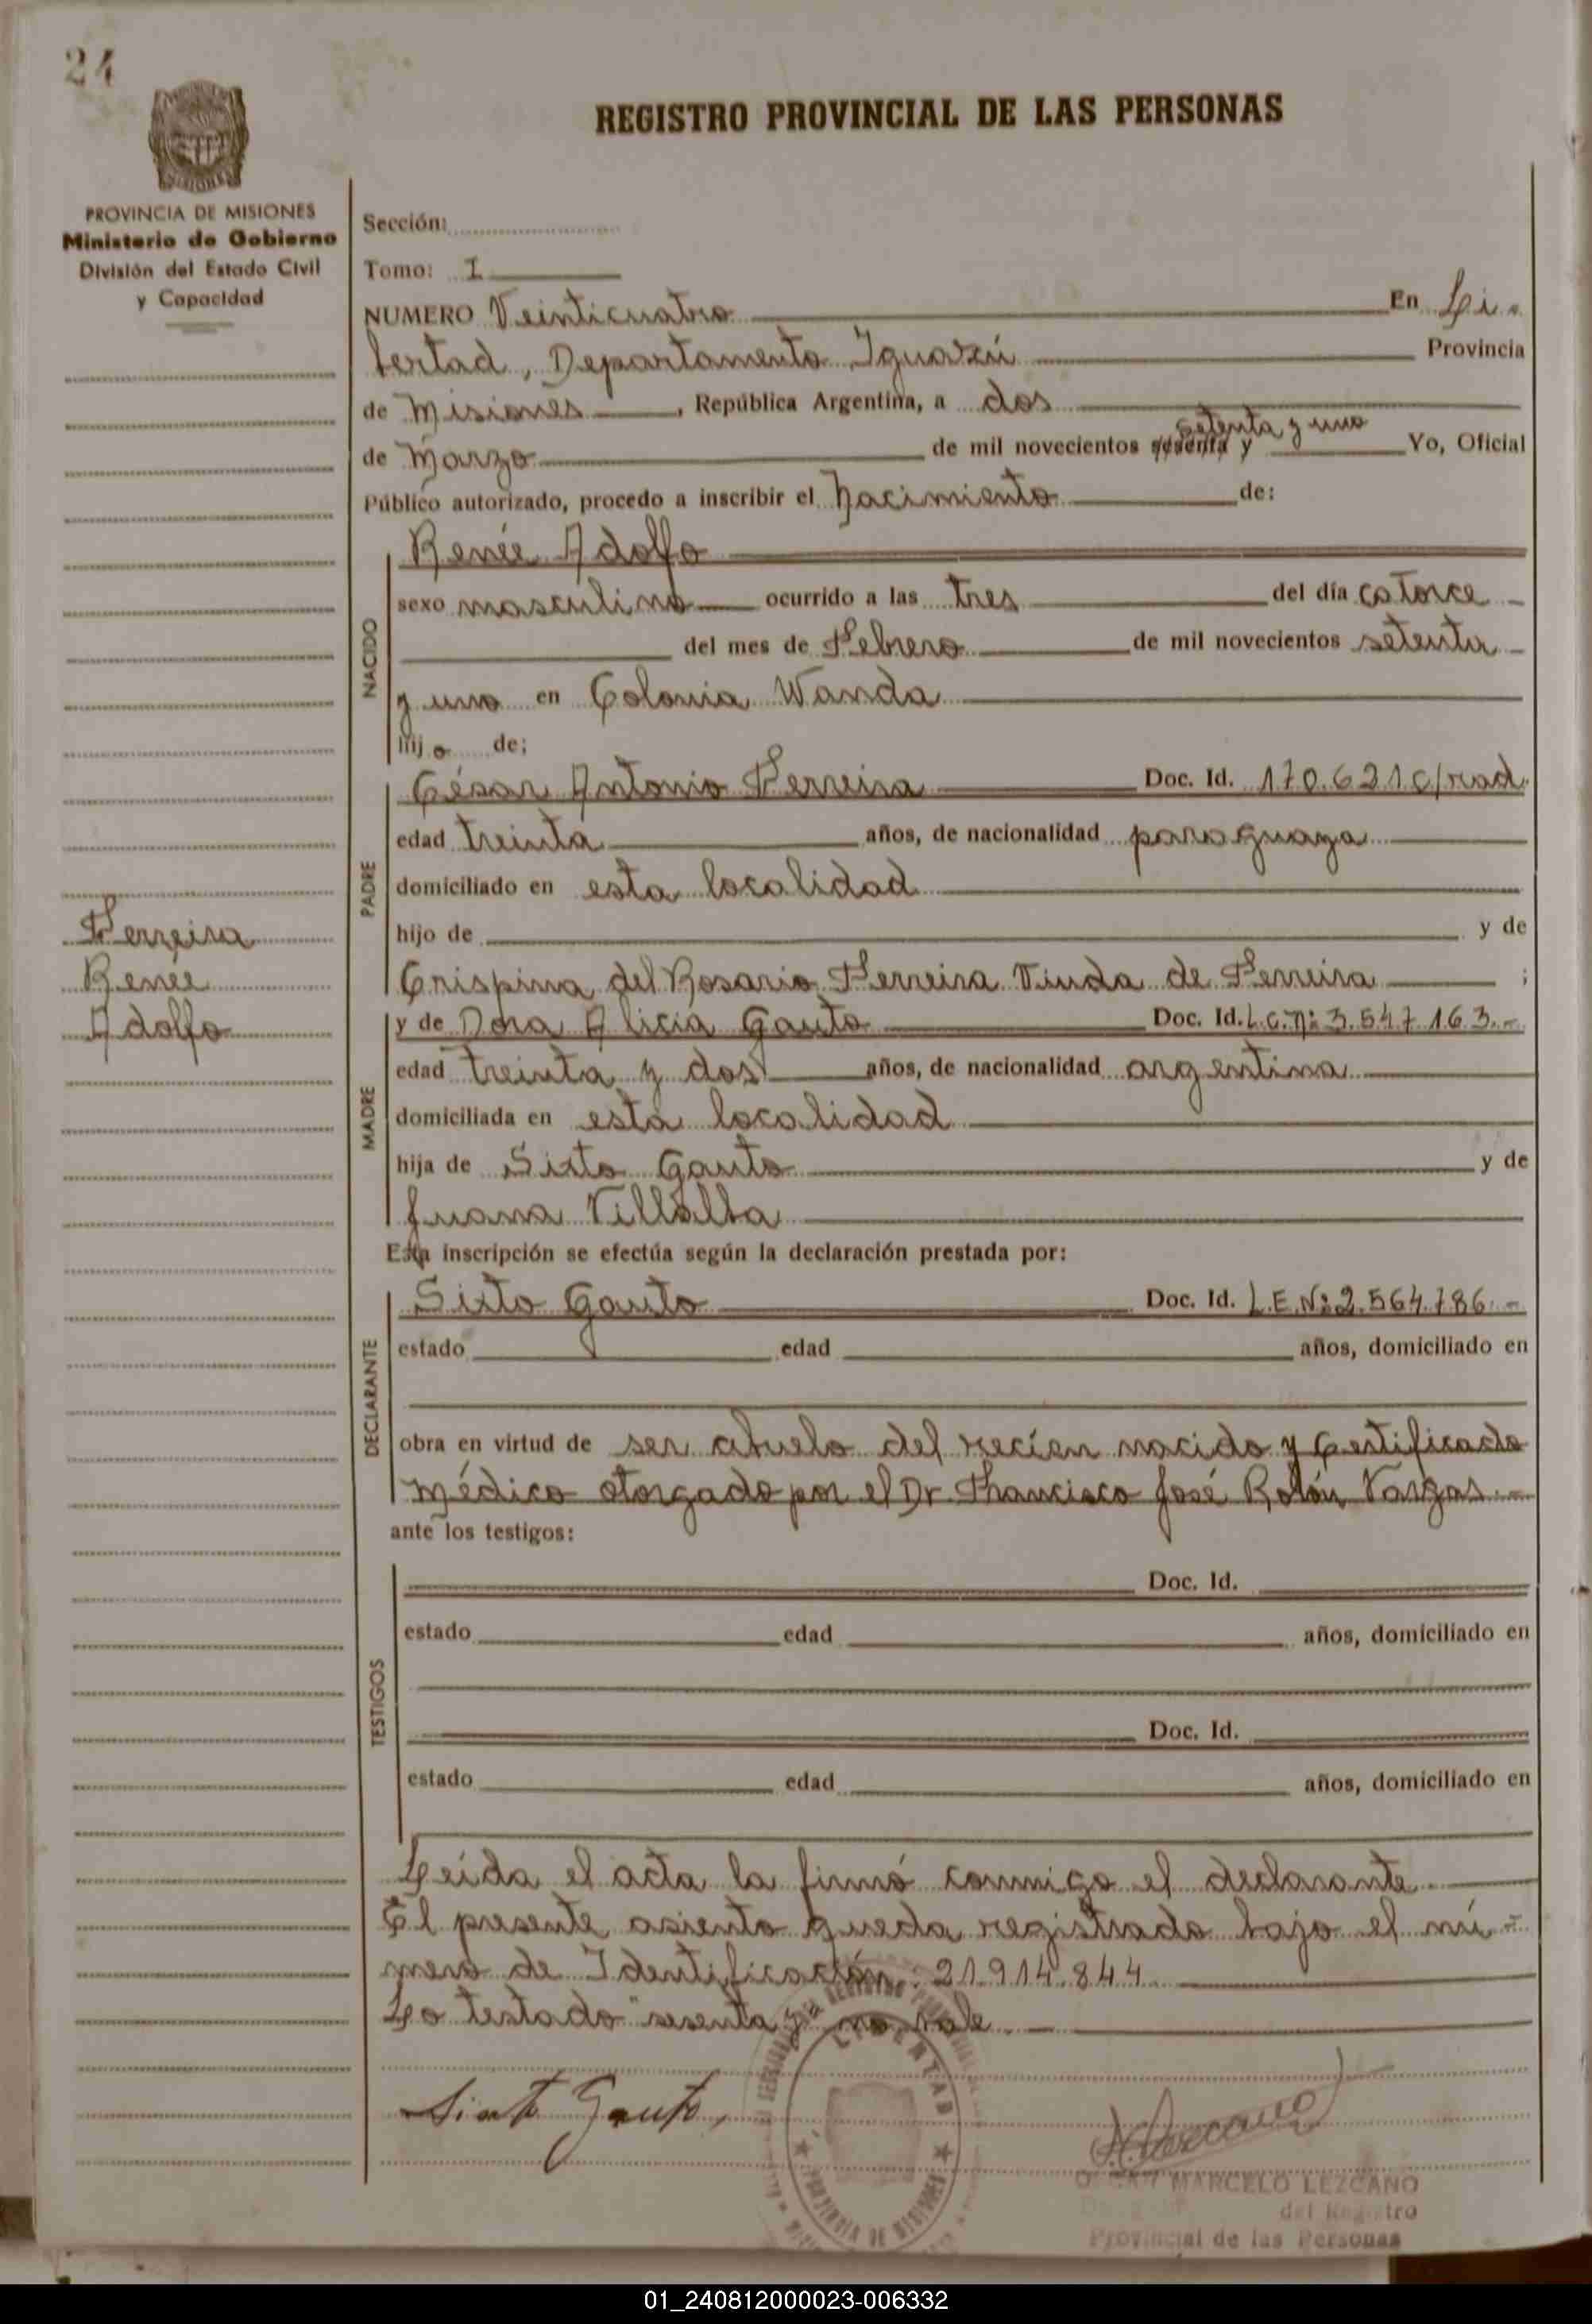 24
REGISTRO PROVINCIAL DE LAS PERSONAS
PROVINCIA DE MISIONES
Ministerio de Gobierno
División del Estado Civil
y Capacidad
Sección:
Tomo: I
NUMERO Veinticuatro En Li-
bertad, Departamento Iguazú Provincia
de Misiones, República Argentina, a dos
setenta y uno
de Marzo de mil novecientos sesenta y Yo, Oficial
Público autorizado, procedo a inscribir el Nacimiento de:
NACIDO
Renée Adolfo
sexo masculino ocurrido a las tres del día catorce
del mes de Febrero de mil novecientos setenta
y uno en Colonia Wanda
hijo de;
PADRE
César Antonio Ferreira Doc. Id. 170.621 c/rad.
edad treinta años, de nacionalidad paraguaya
domiciliado en esta localidad
hijo de y de
Crispina del Rosario Ferreira Viuda de Ferreira ;
Ferreira
Renée
Adolfo
MADRE
y de Dora Alicia Gauto Doc. Id. L.C.Nº 3.547.163.-
edad treinta y dos años, de nacionalidad argentina
domiciliada en esta localidad
hija de Sixto Gauto y de
Juana Villalba
Esta inscripción se efectúa según la declaración prestada por:
DECLARANTE
Sixto Gauto Doc. Id. L.E.Nº 2.564.786.-
estado edad años, domiciliado en
obra en virtud de ser abuelo del recién nacido y Certificado
Médico otorgado por el Dr. Francisco José Rolón Vargas.-
ante los testigos:
TESTIGOS
Doc. Id.
estado edad años, domiciliado en
Doc. Id.
estado edad años, domiciliado en
Leída el acta la firmó conmigo el declarante.
El presente asiento queda registrado bajo el nú-
mero de Identificación: 21.914.844.
Lo testado "sesenta y" no vale.
Sixto Gauto
LIBERTAD
PROVINCIA DE MISIONES
MARCELO LEZCANO
del Registro
Provincial de las Personas
01_240812000023-006332